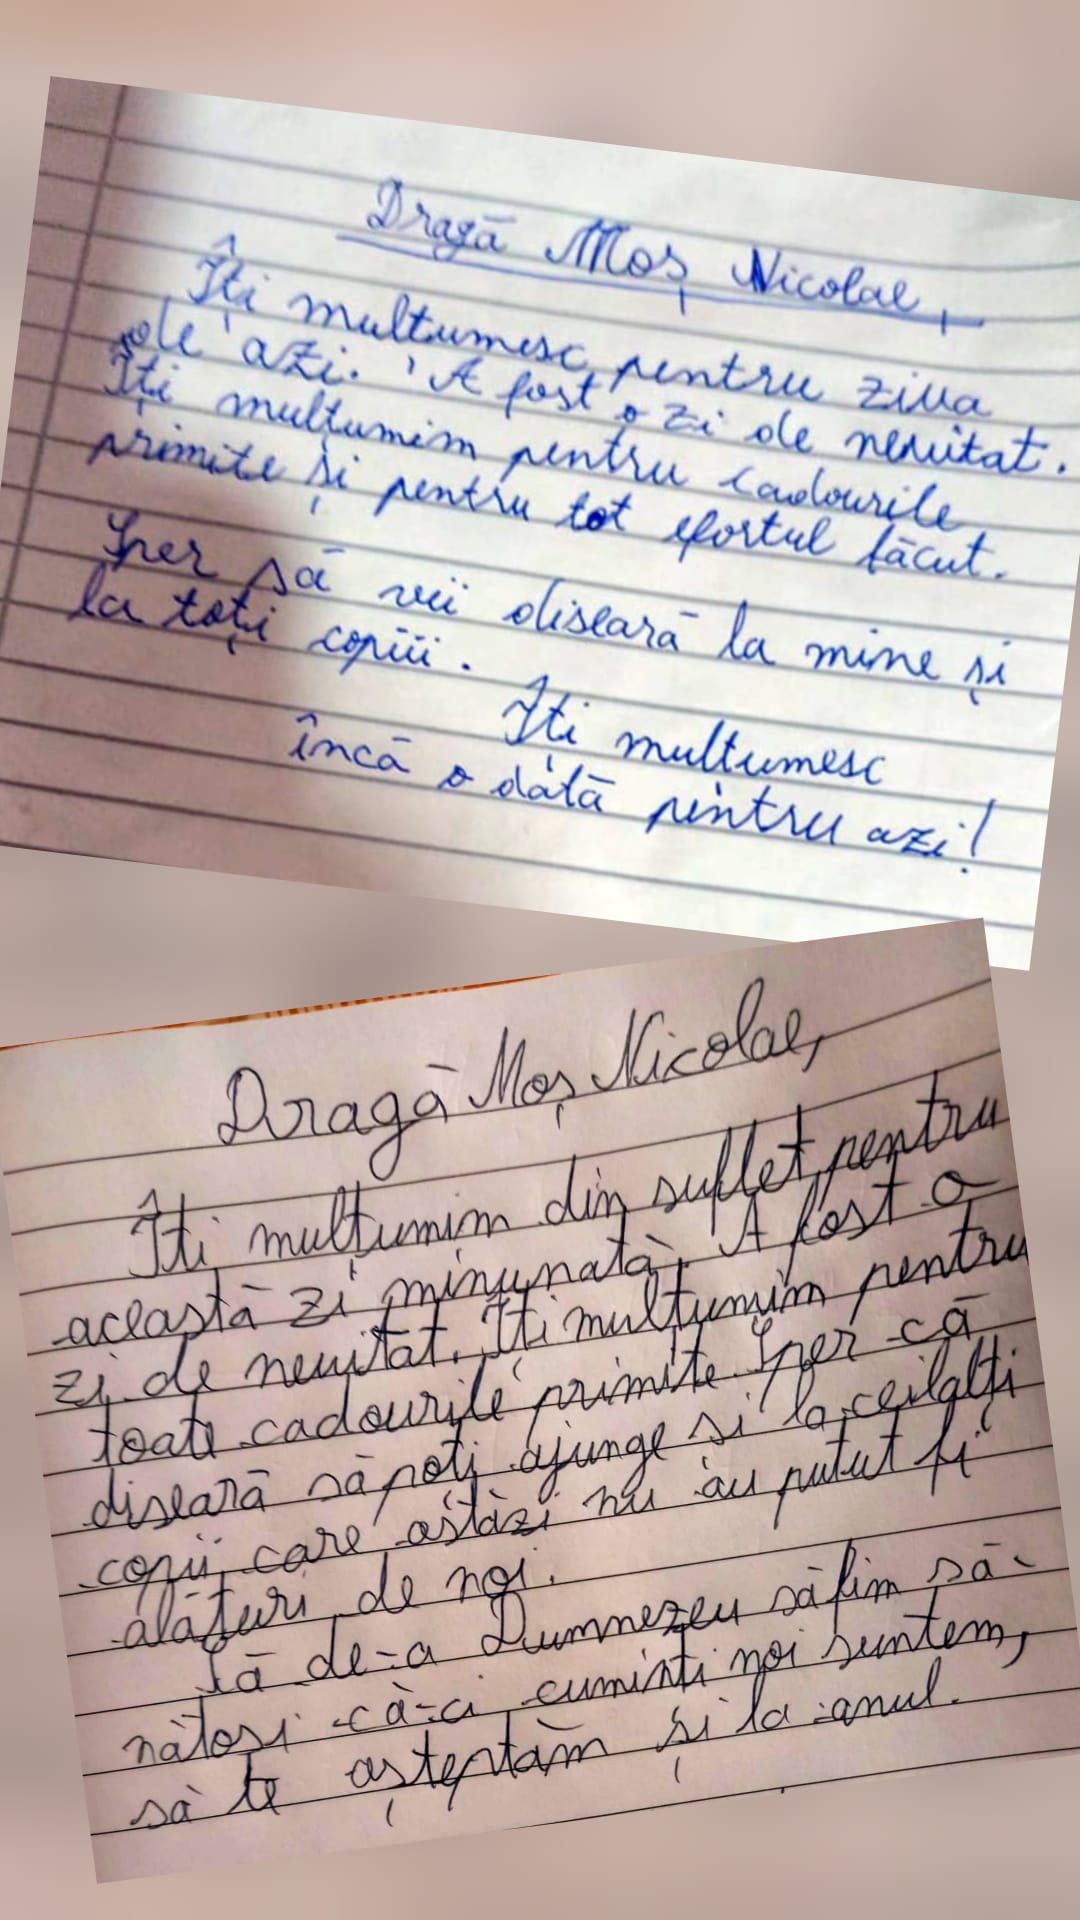 Dragă Moș Nicolae,
Îți mulțumesc pentru ziua
de azi. A fost o zi de neuitat.
Îți mulțumim pentru cadourile
primite și pentru tot efortul făcut.
Sper să vii diseară la mine și
la toți copiii.
Îți mulțumesc
încă o dată pentru azi!
Dragă Moș Nicolae,
Îți mulțumim din suflet pentru
această zi minunată. A fost o
zi de neuitat. Îți mulțumim pentru
toate cadourile primite. Sper că
diseară să poți ajunge și la ceilalți
copii care astăzi nu au putut fi
alături de noi.
Să de-a Dumnezeu să fim să-
nătoși că-ci cuminți noi suntem,
să te așteptăm și la anul.